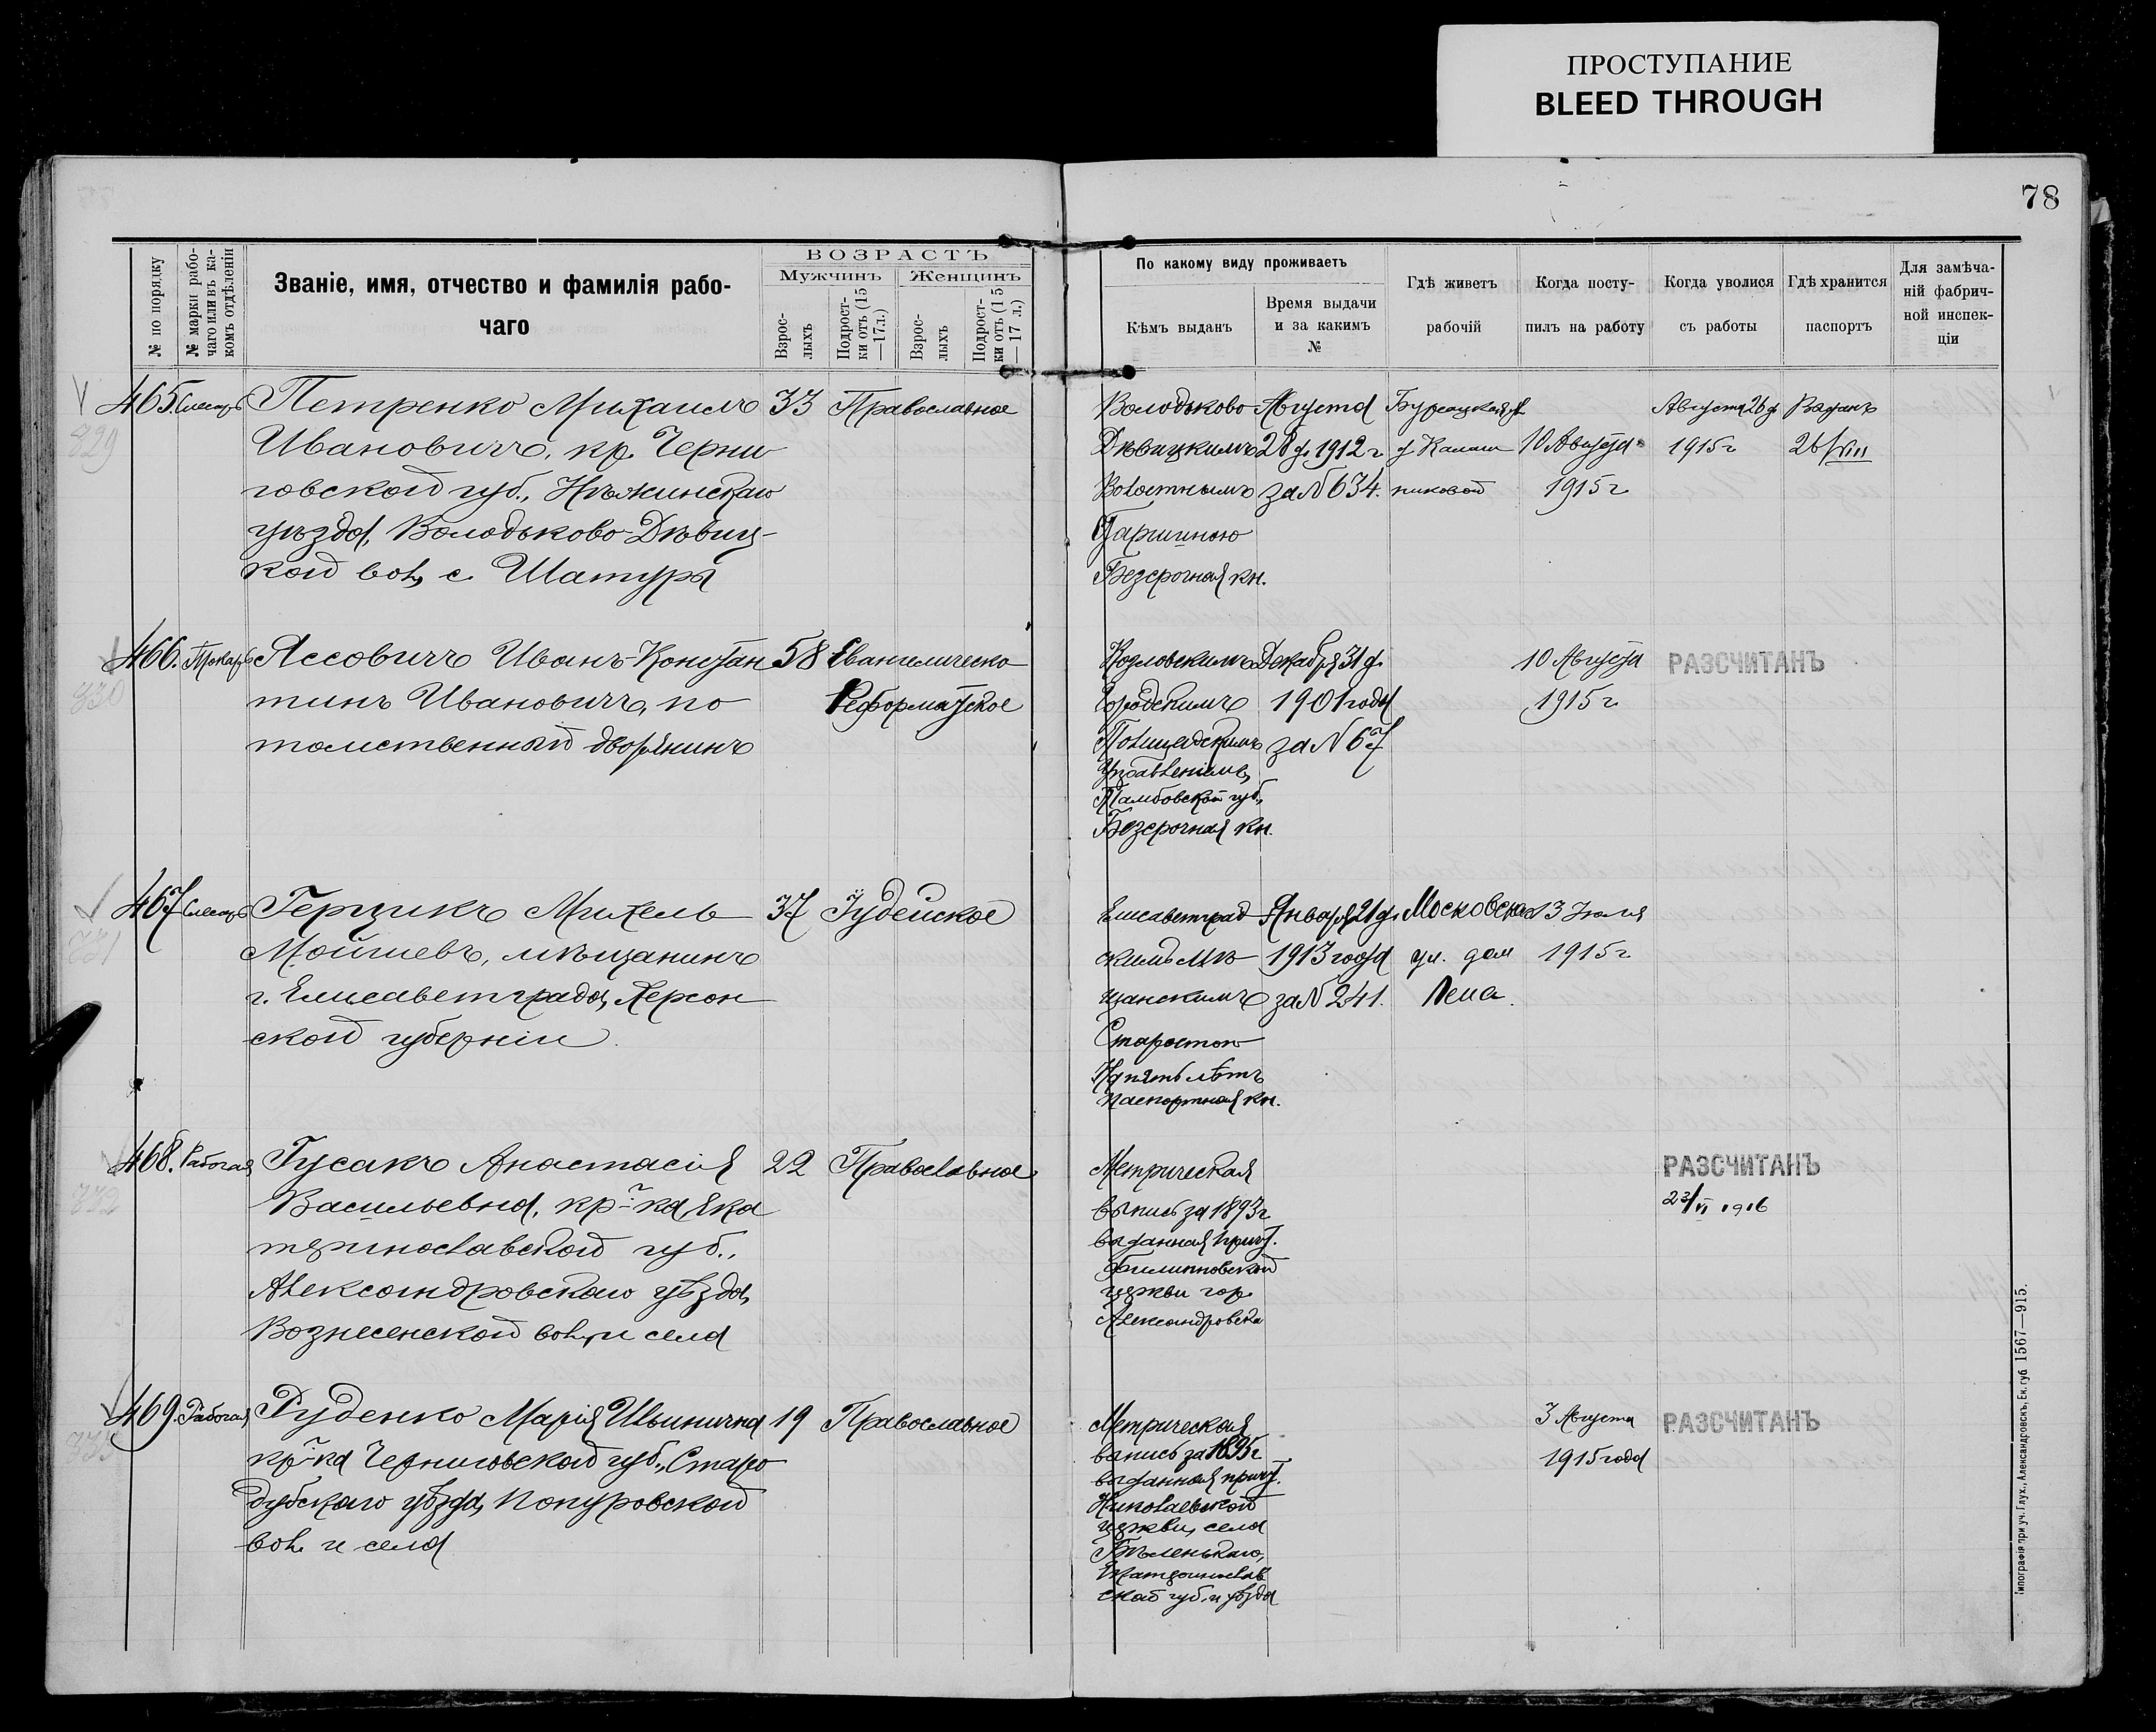 ПРОСТУПАНИЕ
BLEED THROUGH
78
№ по порядку
№ марки рабо-
чаго или въ ка-
комъ отдѣленіи
Званіе, имя, отчество и фамилія рабо-
чаго
ВОЗРАСТЪ
Мужчинъ
Женщинъ
Взрос-
лыхъ
Подрост-
ки отъ (15
—17 л.)
Взрос-
лыхъ
Подрост-
ки отъ (15
—17 л.)
По какому виду проживаетъ
Кѣмъ выданъ
Время выдачи
и за какимъ
№
Гдѣ живетъ
рабочій
Когда посту-
пилъ на работу
Когда уволися
съ работы
Гдѣ хранится
паспортъ
Для замѣча-
ній фабрич-
ной инспек-
ціи
465. Слесарь Петренко Михаилъ 33 Православное
829
Ивановичъ, кр. Черни
говской губ., Нѣжинскаго
уѣзда, Володьково-Дѣвиц-
кой вол, с. Шатура
Володьково
Дѣвицкимъ
Волостнымъ
Старшиною
Безсрочная кн.
Августа
28 д. 1912 г.
за № 634.
10 Августа
1915 г
Августа 26 д
1915 г
Выданъ
26/VIII
466. Токарь Яссовичъ Иванъ-Констан 58 Евангелическо
830
тинъ Ивановичъ, по Реформатское
томственный дворянинъ
Козловскимъ
Городскимъ
Полицейскимъ
Управленіемъ,
Тамбовской губ.,
Безсрочная кн.
Декабря 31 д.
1901 года
за № 67
10 Августа
1915 г
РАЗСЧИТАНЪ
467 Слесарь Герцикъ Михель 37 Іудейское
831
Мойшевъ, мѣщанинъ
г. Елисаветграда, Херсон
ской губерніи.
Елисаветград
скимъ Мѣ
щанскимъ
Старостою
На пять лѣтъ
паспортная кн.
Января 21 д.
1913 года
за № 241.
Московская
ул. дом
Леща.
13 Іюля
1915 г
468. Рабочая Гусакъ Анастасія 22 Православное
832
Васильевна, кр-ка Ека
теринославской губ.,
Александровскаго уѣзда,
Вознесенской вол., и села
Метрическая
выпись за 1893 г
выданная причт.
Филипповской
церкви гор.
Александровска
РАЗСЧИТАНЪ
23/VI 1916
469. Рабочая Руденко Марія Ильинична 19 Православное
833
кр-ка Черниговской губ., Старо
дубскаго уѣзда, Понуровской
вол. и села
Метрическая
выпись за 1895 г
выданная причт.
Николаевской
церкви, села
Бѣленькаго,
Екатеринослав
ской губ. и уѣзда
3 Августа
1915 года
РАЗСЧИТАНЪ
Типографія при уч. Глух., Александровскъ, Ек. губ. 1567—915.